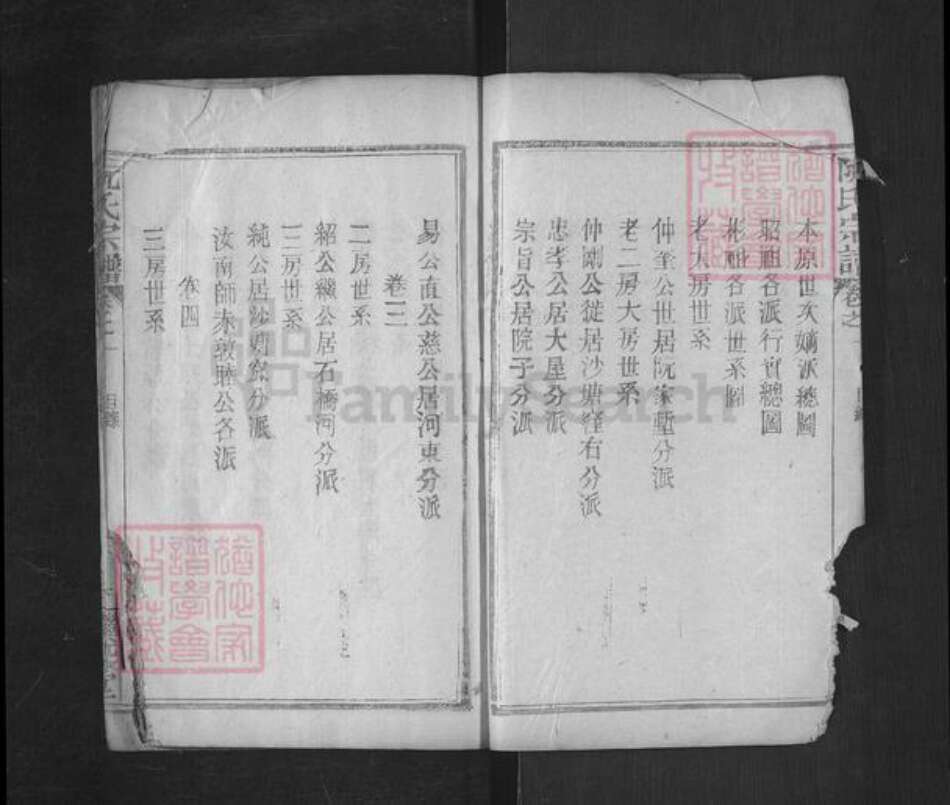 阮氏宗譜 卷之一 目錄
本原世次嫡派總圖
昭祖各派行實總圖
彬祖各派世系圖
老大房世系
仲奎公世居阮家塹分派
老二房大房世系
仲剛公徙居沙塘窪右分派
忠孝公居大屋分派
宗旨公居院子分派
易公直公慈公居河東分派
卷三
二房世系
紹公繡公居石橋河分派
三房世系
純公居沙 分派
汝南師赤敦聰公各派
卷四
三房世系
阮氏宗譜 卷之一 目錄
譜學會
收藏
FamilySearch